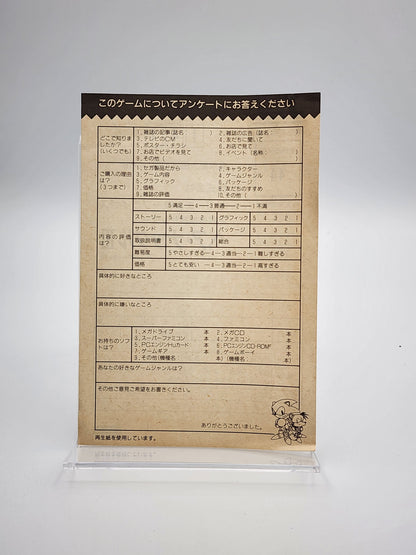 このゲームについてアンケートにお答えください
どこで知りましたか？(いくつでも)
1. 雑誌の記事(誌名 )
2. 雑誌の広告(誌名： )
3. テレビのCM
4. 友だちに聞いて
5. ポスター・チラシ
6. お店で見て
7. お店でビデオを見て
8. イベント(名称： )
9. その他( )
ご購入の理由は？(3つまで)
1. セガ製品だから
2. キャラクター
3. ゲーム内容
4. ゲームジャンル
5. グラフィック
6. パッケージ
7. 価格
8. 友だちのすすめ
9. 雑誌の評価
10. その他( )
内容の評価は？
5 満足―4―3 普通―2―1 不満
ストーリー 5 4 3 2 1 グラフィック 5 4 3 2 1
サウンド 5 4 3 2 1 パッケージ 5 4 3 2 1
取扱説明書 5 4 3 2 1 総合 5 4 3 2 1
難易度 5やさしすぎる―4―3適当―2―1難しすぎる
価格 5とても安い―4―3適当―2―1高すぎる
具体的に好きなところ
具体的に嫌いなところ
お持ちのソフトは？
1. メガドライブ 本
2. メガCD 本
3. スーパーファミコン 本
4. ファミコン 本
5. PCエンジンHuカード 本
6. PCエンジンCD-ROM² 本
7. ゲームギア 本
8. ゲームボーイ 本
9. その他(機種名： 本)(機種名： 本)
あなたの好きなゲームジャンルは？
その他ご意見ご希望をお書きください。
ありがとうございました。
再生紙を使用しています。